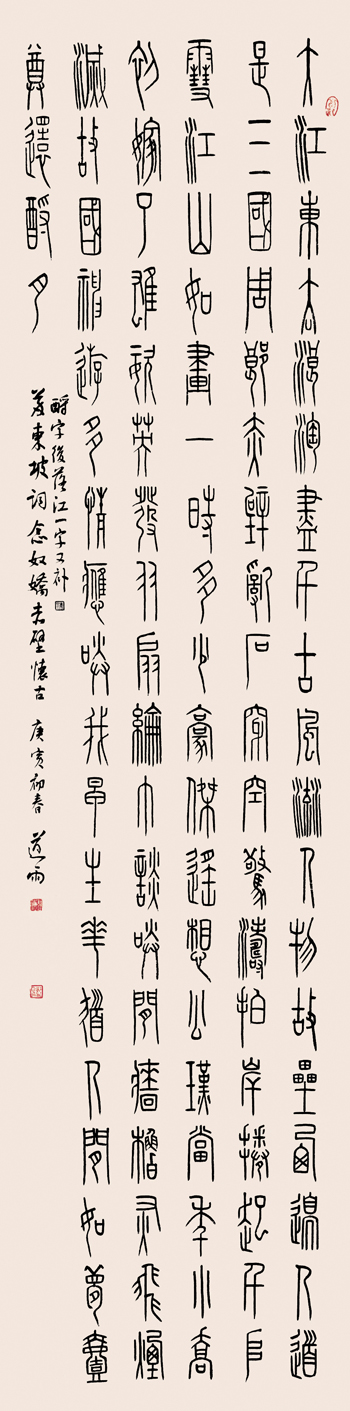 大江東去浪淘盡千古風流人物故壘西邊人道
是三國周郎赤壁亂石穿空驚濤拍岸捲起千堆
雪江山如畫一時多少豪傑遙想公瑾當年小喬
初嫁了雄姿英發羽扇綸巾談笑間牆櫓灰飛煙
滅故國神遊多情應笑我早生華髮人間如夢壹
尊還酹月
酹字後落江一字又補
蘇東坡詞念奴嬌赤壁懷古 庚寅初春 道雨